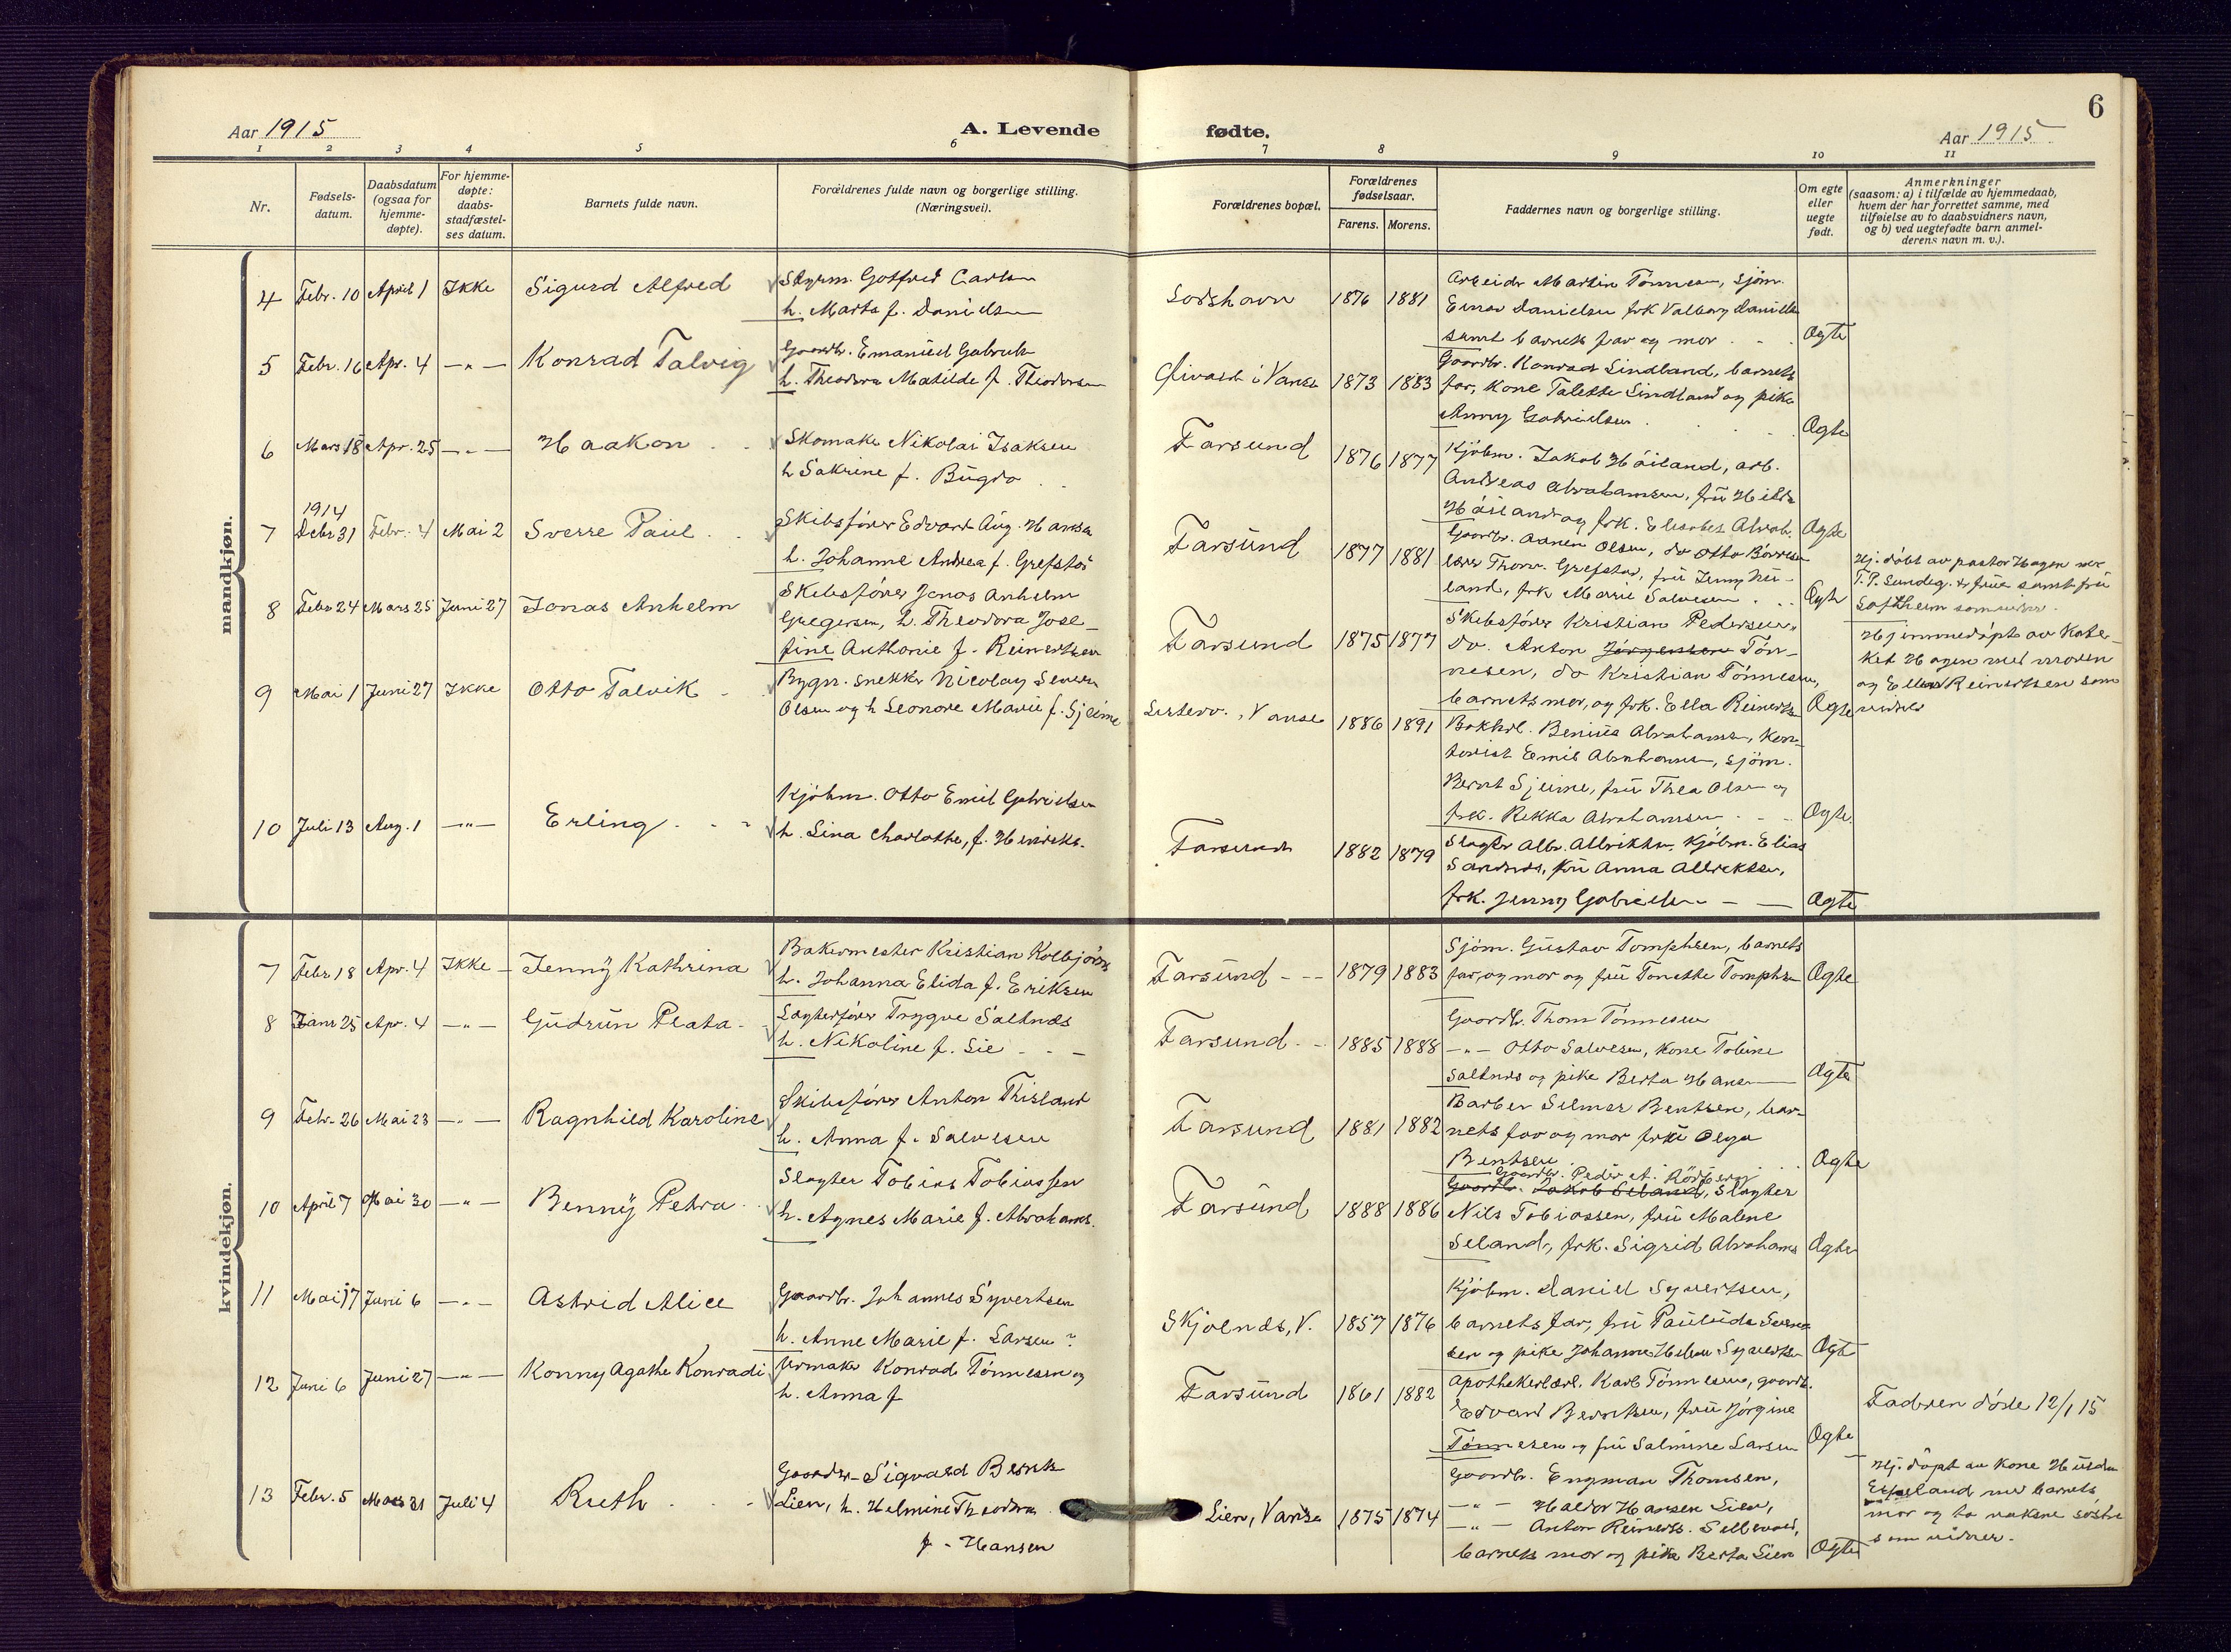 Aar 1915
A. Levende
fødte.
Aar 1915
6
1 2 3 4 5 6 7 8 9 10 11
Nr.
Fødsels-
datum.
Daabsdatum
(ogsaa for
hjemme-
døpte).
For hjemme-
døpte:
daabs-
stadfæstel-
ses datum.
Barnets fulde navn.
Forældrenes fulde navn og borgerlige stilling.
(Næringsvei).
Forældrenes bopæl.
Forældrenes
fødselsaar.
Farens. Morens.
Faddernes navn og borgerlige stilling.
Om egte
eller
uegte
født.
Anmerkninger
(saasom: a) i tilfælde av hjemmedaab,
hvem der har forrettet samme, med
tilføielse av to daabsvidners navn,
og b) ved uegtefødte barn anmel-
derens navn m. v.).
mandkjøn.
4 Febr. 10 April 1 Ikke Sigurd Alfred
Styrm. Gotfred Carlsen
h. Marta f. Danielsen
1876 1881
Arbeider Martin Tønnesen, sjøm.
Einar Danielsen frk Valborg Danielsen
samt barnets far og mor Ægte
5 Febr. 16 Apr. 4 -"- Konrad Talvig
Gaardbr. Emanuel Gabriels
h. Theodora Matilde f. Theodorsen
i Vanse 1873 1883
Gaardbr. Konrad Lindland, barnets
far, kone Talette Lindland og pike
Anny Gabrielsen Ægte
6 Mars 18 Apr. 25 -"- Haakon
Skomaker Nikolai Isaksen
h Sakrine f. Bugdo
Farsund 1876 1877
Kjøbm. Jakob Høiland, arb.
Andreas Abrahamsen, frü Hilda
Høiland og frk. Elisabet Abrah. Ægte
7 1914
Debr 31 Febr. 4 Mai 2 Sverre Paul
Skibsfører Edvard Aug. Hansen
h. Johanne Andrea f. Grefstad
Farsund 1877 1881
Gaardbr. Aanen Olsen, do Otto Børresen
lærer Thorv. Grefstad, frü Jenny Nü-
land, frk Marie Salvesen Ægte
Hj. døbt av pastor Hagen med
T. P. Sundeg. & frue samt frü
som vidner.
8 Febr 24 Mars 25 Juni 27 Jonas Anhelm
Skibsfører Jonas Anhelm
Gregersen, h. Theodora Jose-
fine Anthonie f. Reinertsen
Farsund 1875 1877
Skibsfører Kristian Pedersen,
do. Anton Jørgensen Tøn-
nesen, do Kristian Tønnesen,
barnets mor, og frk. Ella Reinerts Ægte
Hjemmedøpt av Kate-
ket Hagen med moren
og Ella Reinertsen som
vidner
9 Mai 1 Juni 27 Ikke Otto Talvik
Bygn. snekker Nicolay Severin
Olsen og h Leonore Marie f. Sjeime
Vanse 1886 1891
Bokhol. Benius Abrahamsen, kon-
torist Emil Abrahamsen, sjøm.
Bernt Sjeime, frü Thea Olsen og
frk. Rekka Abrahamsen Ægte.
10 Juli 13 Aug. 1 -"- Erling
Kjøbm. Otto Emil Gabrielsen
h. Lina Charlotte, f. Henriks.
Farsund 1882 1879
Slagter Albr. Albriktsen, Kjøbm. Elias
Sandnes, frü Anna Albriktsen,
frk. Jenny Gabrielsen Ægte
kvindekjøn.
7 Febr. 18 Apr. 4 Ikke Jenny Kathrina
Bakermester Kristian Kolbjørns
h. Johanna Elida f. Eriksen
Farsund 1879 1883
Sjøm. Gustav Tomphsen, barnets
far, og mor og frü Tonette Tomphsen Ægte
8 Janr 25 Apr. 4 -"- Gudrun Peata
Trygve Saltnes
h. Nikoline f. Lie
Farsund 1885 1888
Gaardb. Thom Tønnesen
-"- Otto Salvesen, kone Tobine
Saltnes og pike Berta Hansen Ægte
9 Febr. 26 Mai 23 -"- Ragnhild Karoline
Skibsfører Anton Thisland
h. Anna f. Salvesen
Farsund 1881 1882
Barber Selmer Bentsen, bar-
nets far og mor frü Olga
Bentsen Ægte
10 April 7 Mai 30 -"- Benny Petra
Slagter Tobias Tobiassen
h. Agnes Marie f. Abrahams.
Farsund 1888 1886
Gaardbr. Peder A. Rødberg
Gaardb. Jakob Seland, Slagter
Nils Tobiassen, frü Malene
Seland, frk. Sigrid Abrahams Ægte
11 Mai 17 Juni 6 -"- Astrid Alice
Gaardbr. Johannes Syvertsen
h. Anne Marie f. Larsen?
Skjolnes, V. 1857 1876
Kjøbm. Daniel Syvertsen,
barnets far, frü Paulüda Svend-
sen og pike Johanne Helene Syvertsen Ægte
12 Juni 6 Juni 27 -"- Konny Agathe Konradi
Urmaker Konrad Tønnesen og
h. Anna f
Farsund 1861 1882
Apothekerlærl. Karl Tønnesen, gaardb.
Edvard Berntsen, frü Jørgine
Tønnesen og frü Salmine Larsen Ægte
Faderen døde 12/1 15
13 Febr. 5 Mars 31 Juli 4 Ruth
Gaardbr. Sigvald Bernts
Lien, h. Helmine Theodora
f. Hansen
Lien, Vanse 1875 1874
Gaardbr. Engman Thomsen,
-"- Haldor Hansen Lien,
-"- Anton Reinerts. Sellevold,
barnets mor og pike Berta Lien Ægte
Hj. døpt av kone Hulda
med barnets
mor og to voksne søstre
som vidner.